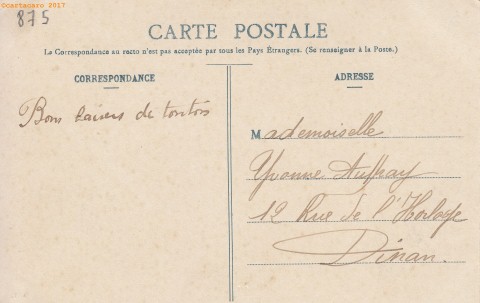 ©cartacaro 2017
875
CARTE POSTALE
La Correspondance au recto n'est pas acceptée par tous les Pays Étrangers. (Se renseigner à la Poste.)
CORRESPONDANCE
Bons baisers de tontos
ADRESSE
Mademoiselle
Yvonne Auffray
12 Rue de l'Horloge
Dinan.